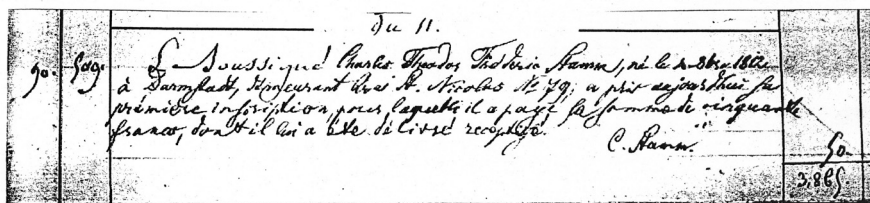 Du 11.
50. 509. Le Soussigné Charles Theodor Fréderic Stamm, né le 8bre
à Darmstadt, demeurant Quai St. Nicolas No 79; a pris aujourd'hui sa
première inscription, pour laquelle il a payé la somme de cinquante
francs, dont il lui a été délivré récépissé.
C. Stamm.
50.
3,865.